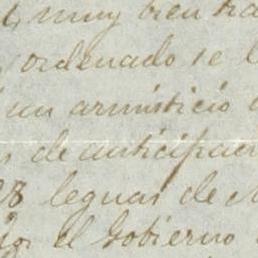 muy bien tra
ordenado se l
un armisticio
de anticipac
28 leguas de
el Gobierno